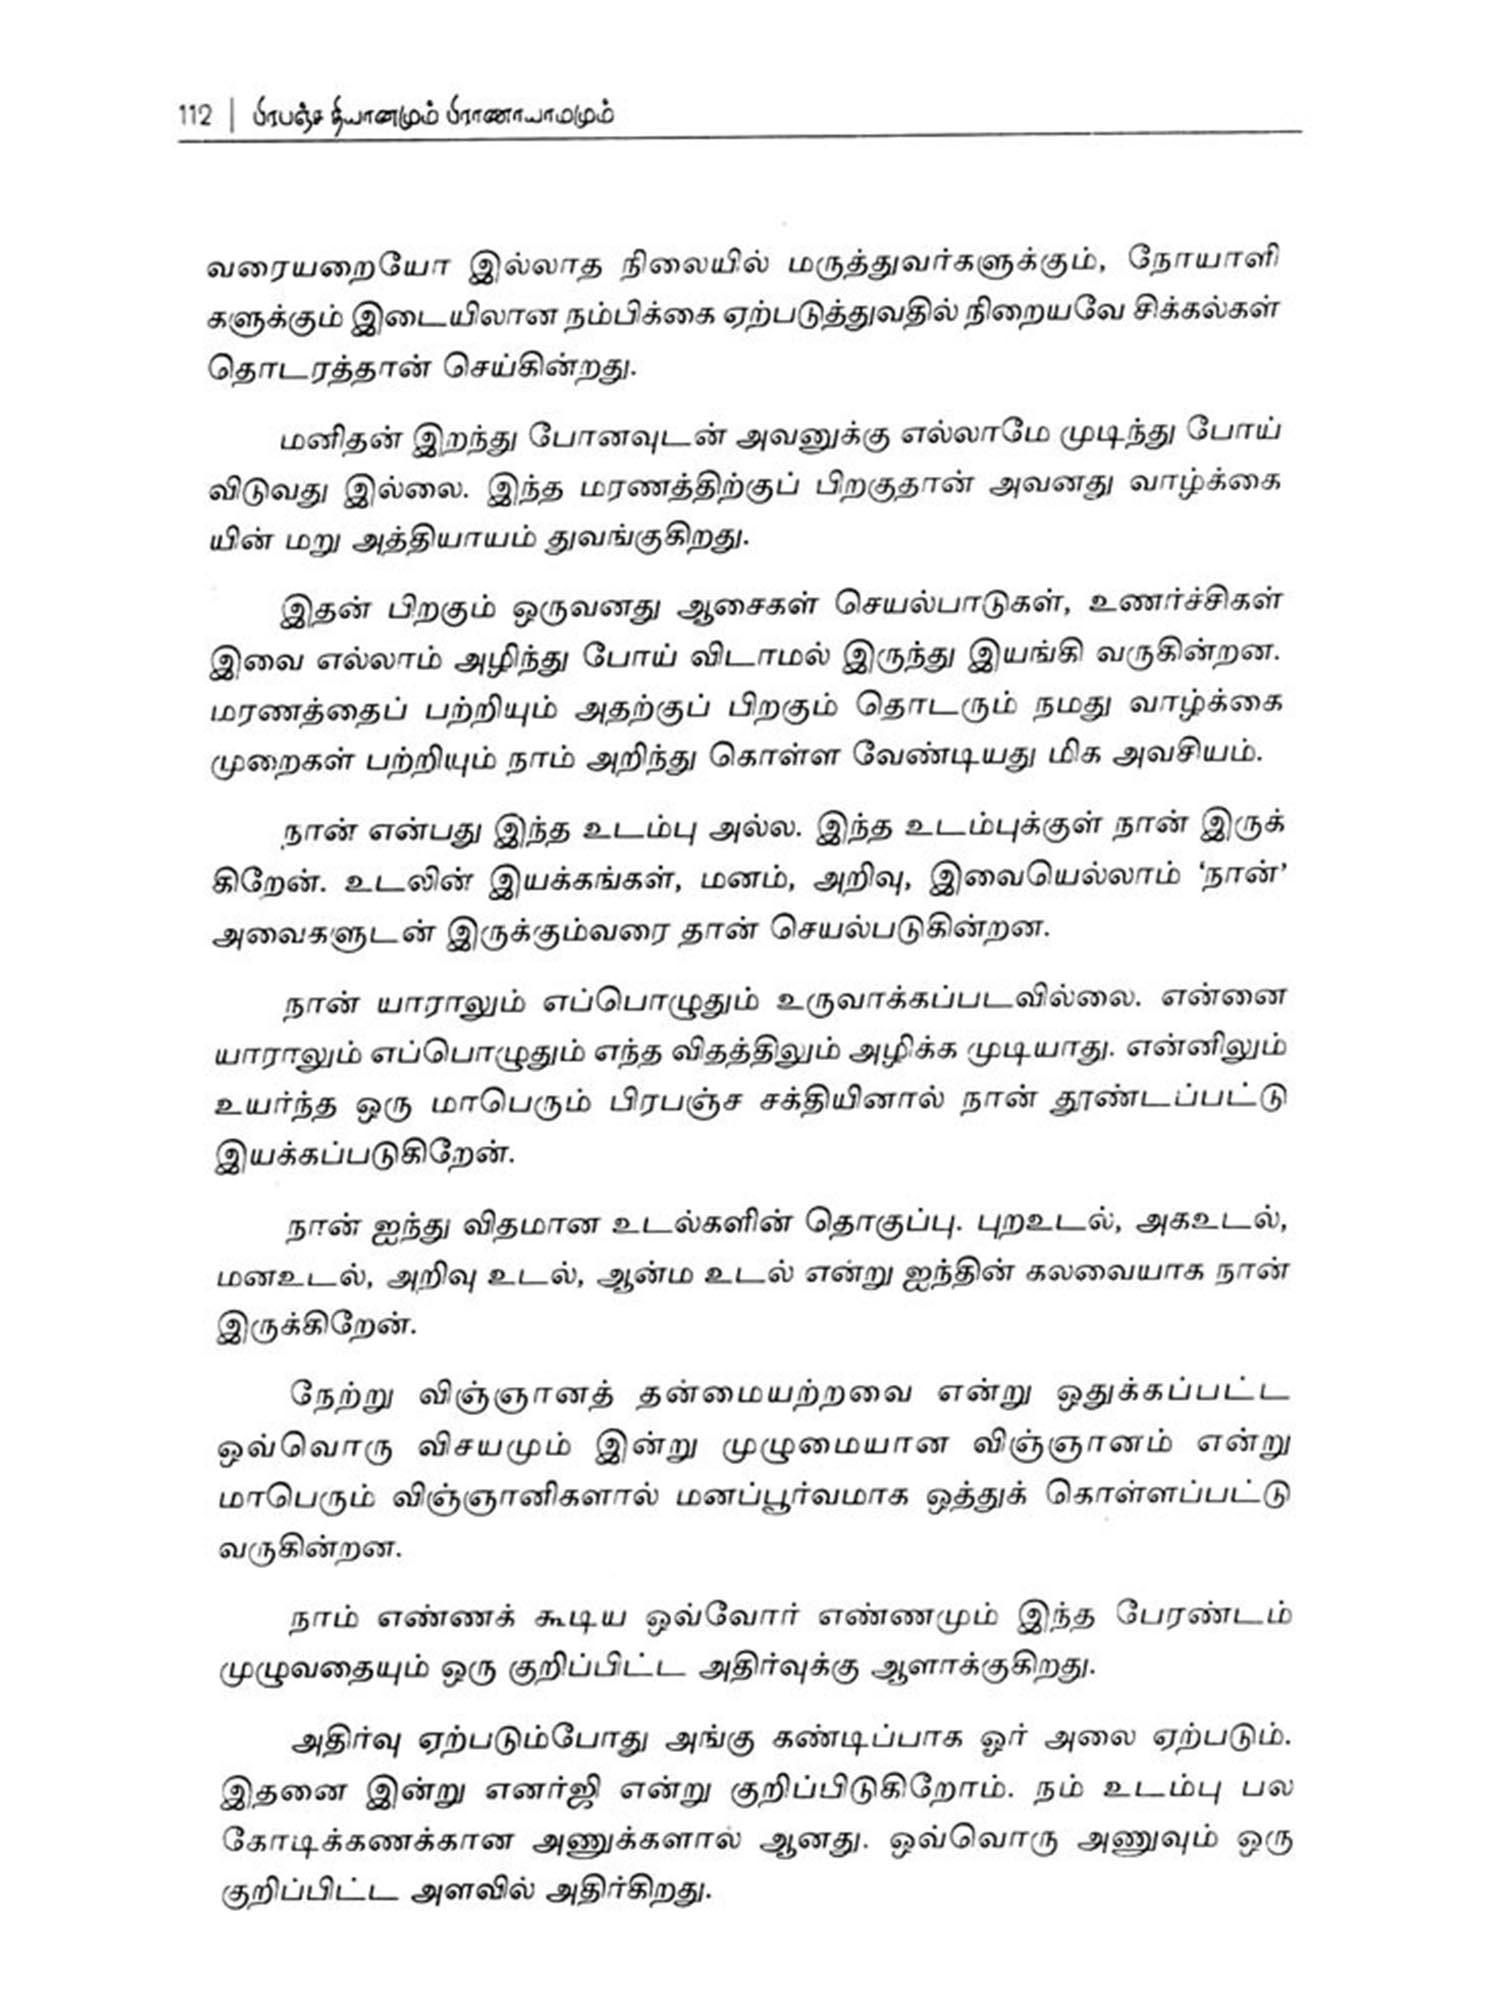 112 | பிரபஞ்ச தியானமும் பிராணாயாமமும்
வரையறையோ இல்லாத நிலையில் மருத்துவர்களுக்கும், நோயாளி
களுக்கும் இடையிலான நம்பிக்கை ஏற்படுத்துவதில் நிறையவே சிக்கல்கள்
தொடரத்தான் செய்கின்றது.
மனிதன் இறந்து போனவுடன் அவனுக்கு எல்லாமே முடிந்து போய்
விடுவது இல்லை. இந்த மரணத்திற்குப் பிறகுதான் அவனது வாழ்க்கை
யின் மறு அத்தியாயம் துவங்குகிறது.
இதன் பிறகும் ஒருவனது ஆசைகள் செயல்பாடுகள், உணர்ச்சிகள்
இவை எல்லாம் அழிந்து போய் விடாமல் இருந்து இயங்கி வருகின்றன.
மரணத்தைப் பற்றியும் அதற்குப் பிறகும் தொடரும் நமது வாழ்க்கை
முறைகள் பற்றியும் நாம் அறிந்து கொள்ள வேண்டியது மிக அவசியம்.
நான் என்பது இந்த உடம்பு அல்ல. இந்த உடம்புக்குள் நான் இருக்
கிறேன். உடலின் இயக்கங்கள், மனம், அறிவு, இவையெல்லாம் ‘நான்’
அவைகளுடன் இருக்கும்வரை தான் செயல்படுகின்றன.
நான் யாராலும் எப்பொழுதும் உருவாக்கப்படவில்லை. என்னை
யாராலும் எப்பொழுதும் எந்த விதத்திலும் அழிக்க முடியாது. என்னிலும்
உயர்ந்த ஒரு மாபெரும் பிரபஞ்ச சக்தியினால் நான் தூண்டப்பட்டு
இயக்கப்படுகிறேன்.
நான் ஐந்து விதமான உடல்களின் தொகுப்பு. புறஉடல், அகஉடல்,
மனஉடல், அறிவு உடல், ஆன்ம உடல் என்று ஐந்தின் கலவையாக நான்
இருக்கிறேன்.
நேற்று விஞ்ஞானத் தன்மையற்றவை என்று ஒதுக்கப்பட்ட
ஒவ்வொரு விசயமும் இன்று முழுமையான விஞ்ஞானம் என்று
மாபெரும் விஞ்ஞானிகளால் மனப்பூர்வமாக ஒத்துக் கொள்ளப்பட்டு
வருகின்றன.
நாம் எண்ணக் கூடிய ஒவ்வோர் எண்ணமும் இந்த பேரண்டம்
முழுவதையும் ஒரு குறிப்பிட்ட அதிர்வுக்கு ஆளாக்குகிறது.
அதிர்வு ஏற்படும்போது அங்கு கண்டிப்பாக ஓர் அலை ஏற்படும்.
இதனை இன்று எனர்ஜி என்று குறிப்பிடுகிறோம். நம் உடம்பு பல
கோடிக்கணக்கான அணுக்களால் ஆனது. ஒவ்வொரு அணுவும் ஒரு
குறிப்பிட்ட அளவில் அதிர்கிறது.